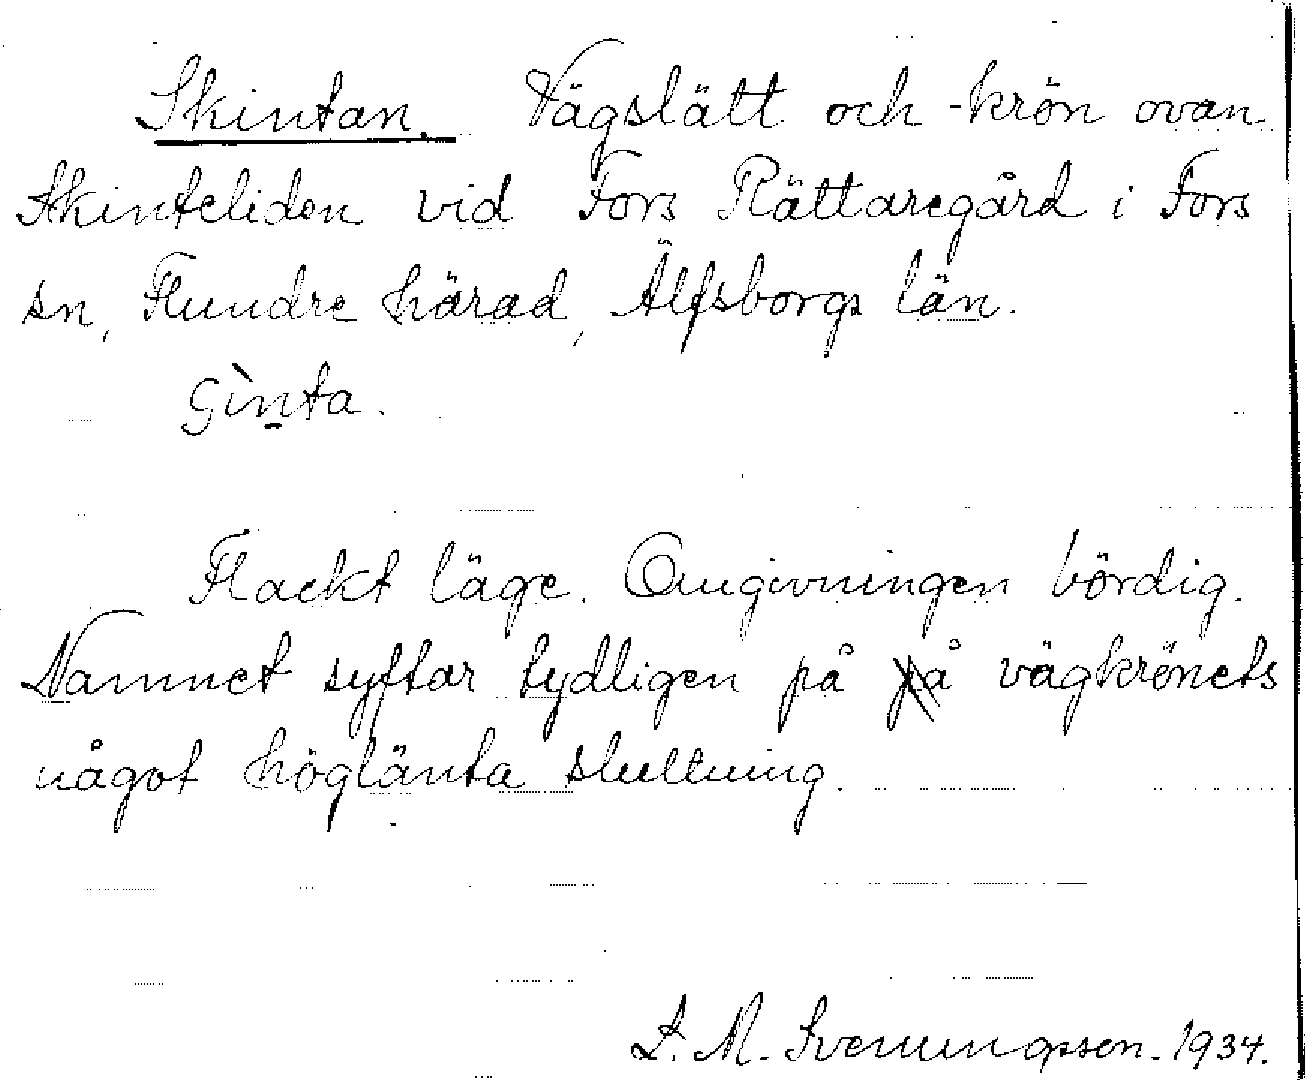 Skintan. Vägslätt och -krön ovan
Skinteliden vid Fors Rättaregård i Fors
sn, Flundre härad, Älfsborgs län.
Gìnta.
Flackt läge. Omgivningen bördig.
Namnet syftar tydligen på på vägkrönets
något höglänta sluttning.
L. M. Svenungsson. 1934.